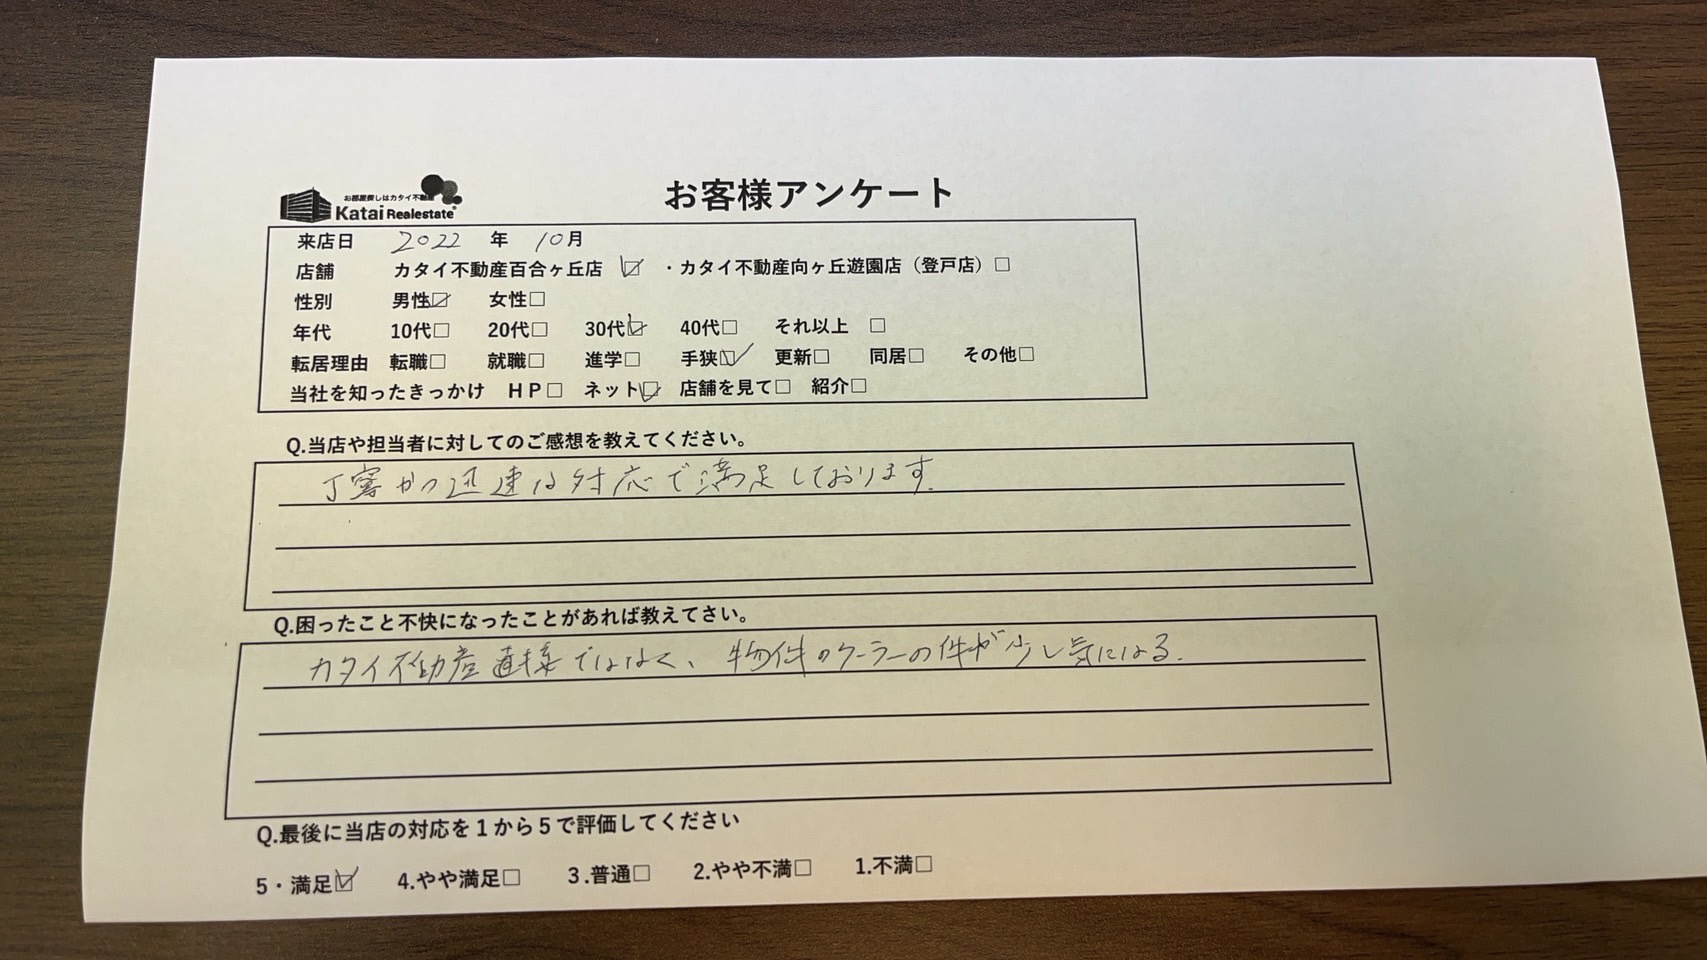 お部屋探しはカタイ不動産
Katai Realestate
お客様アンケート
来店日 2022 年 10月
店舗 カタイ不動産百合ヶ丘店 ☑ ・カタイ不動産向ヶ丘遊園店（登戸店）□
性別 男性☑ 女性□
年代 10代□ 20代□ 30代☑ 40代□ それ以上 □
転居理由 転職□ 就職□ 進学□ 手狭☑ 更新□ 同居□ その他□
当社を知ったきっかけ ＨＰ□ ネット☑ 店舗を見て□ 紹介□
Q.当店や担当者に対してのご感想を教えてください。
丁寧かつ迅速な対応で満足しております.
Q.困ったこと不快になったことがあれば教えてさい。
カタイ不動産直接ではなく、物件のクーラーの件が少し気になる.
Q.最後に当店の対応を１から５で評価してください
5・満足☑ 4.やや満足□ 3.普通□ 2.やや不満□ 1.不満□